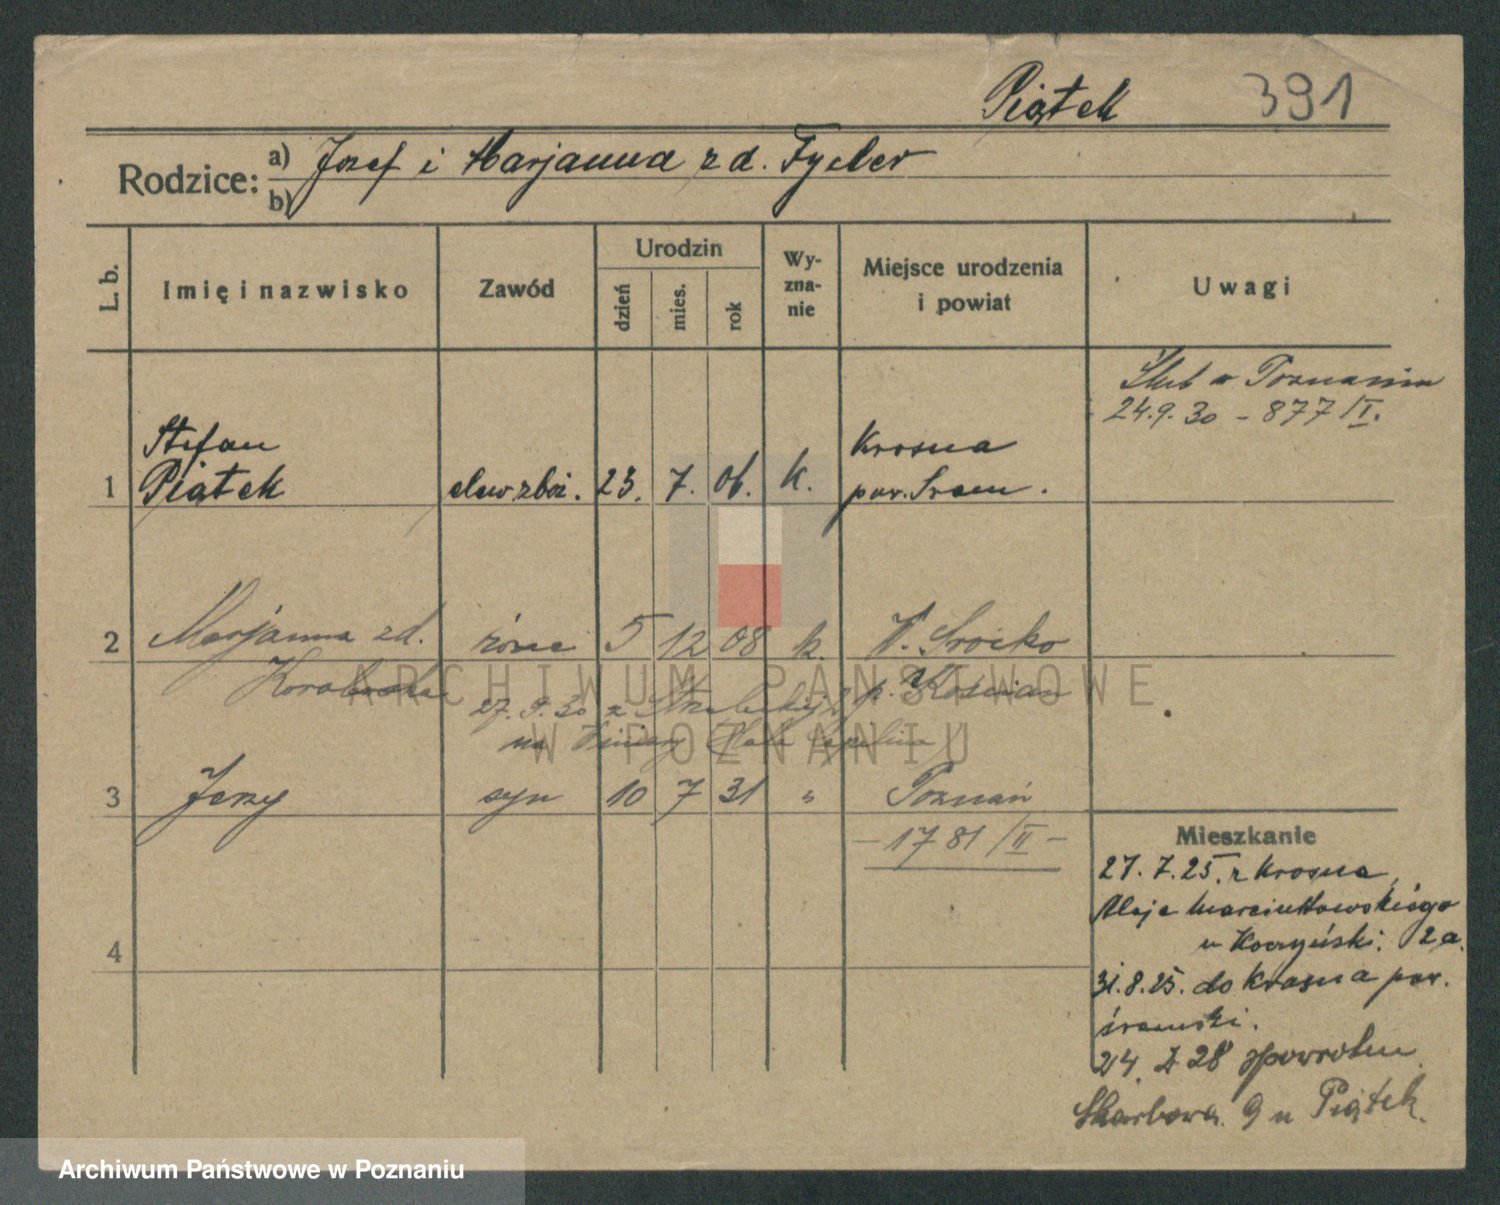 Piątek 391
Rodzice: a) Jozef i Marjanna z d. Fyeler
b)
L. b. Imię i nazwisko Zawód Urodzin dzień mies. rok Wy-zna-nie Miejsce urodzenia i powiat Uwagi
Ślub w Poznaniu
24.9.30 - 877/I.
Stefan Krosna
1 Piątek elew zboż. 23. 7. 06. k. pow. Srem.
2 Marjanna zd. żona 5 12 08 k. W. Sroćko
p. Kościan
27.9.30 z
na
3 Jerzy syn 10 7 31 " Poznań
- 1781/II -
4
Mieszkanie
27.7.25. z Krosna,
Aleje Marcinkowskiego
u Koczyński. 2a.
31.8.25. do Krosna pow.
śremski.
24. 2 28 spowrotem
Skarbowa 9 u Piątek.
ARCHIWUM PAŃSTWOWE
W POZNANIU
Archiwum Państwowe w Poznaniu